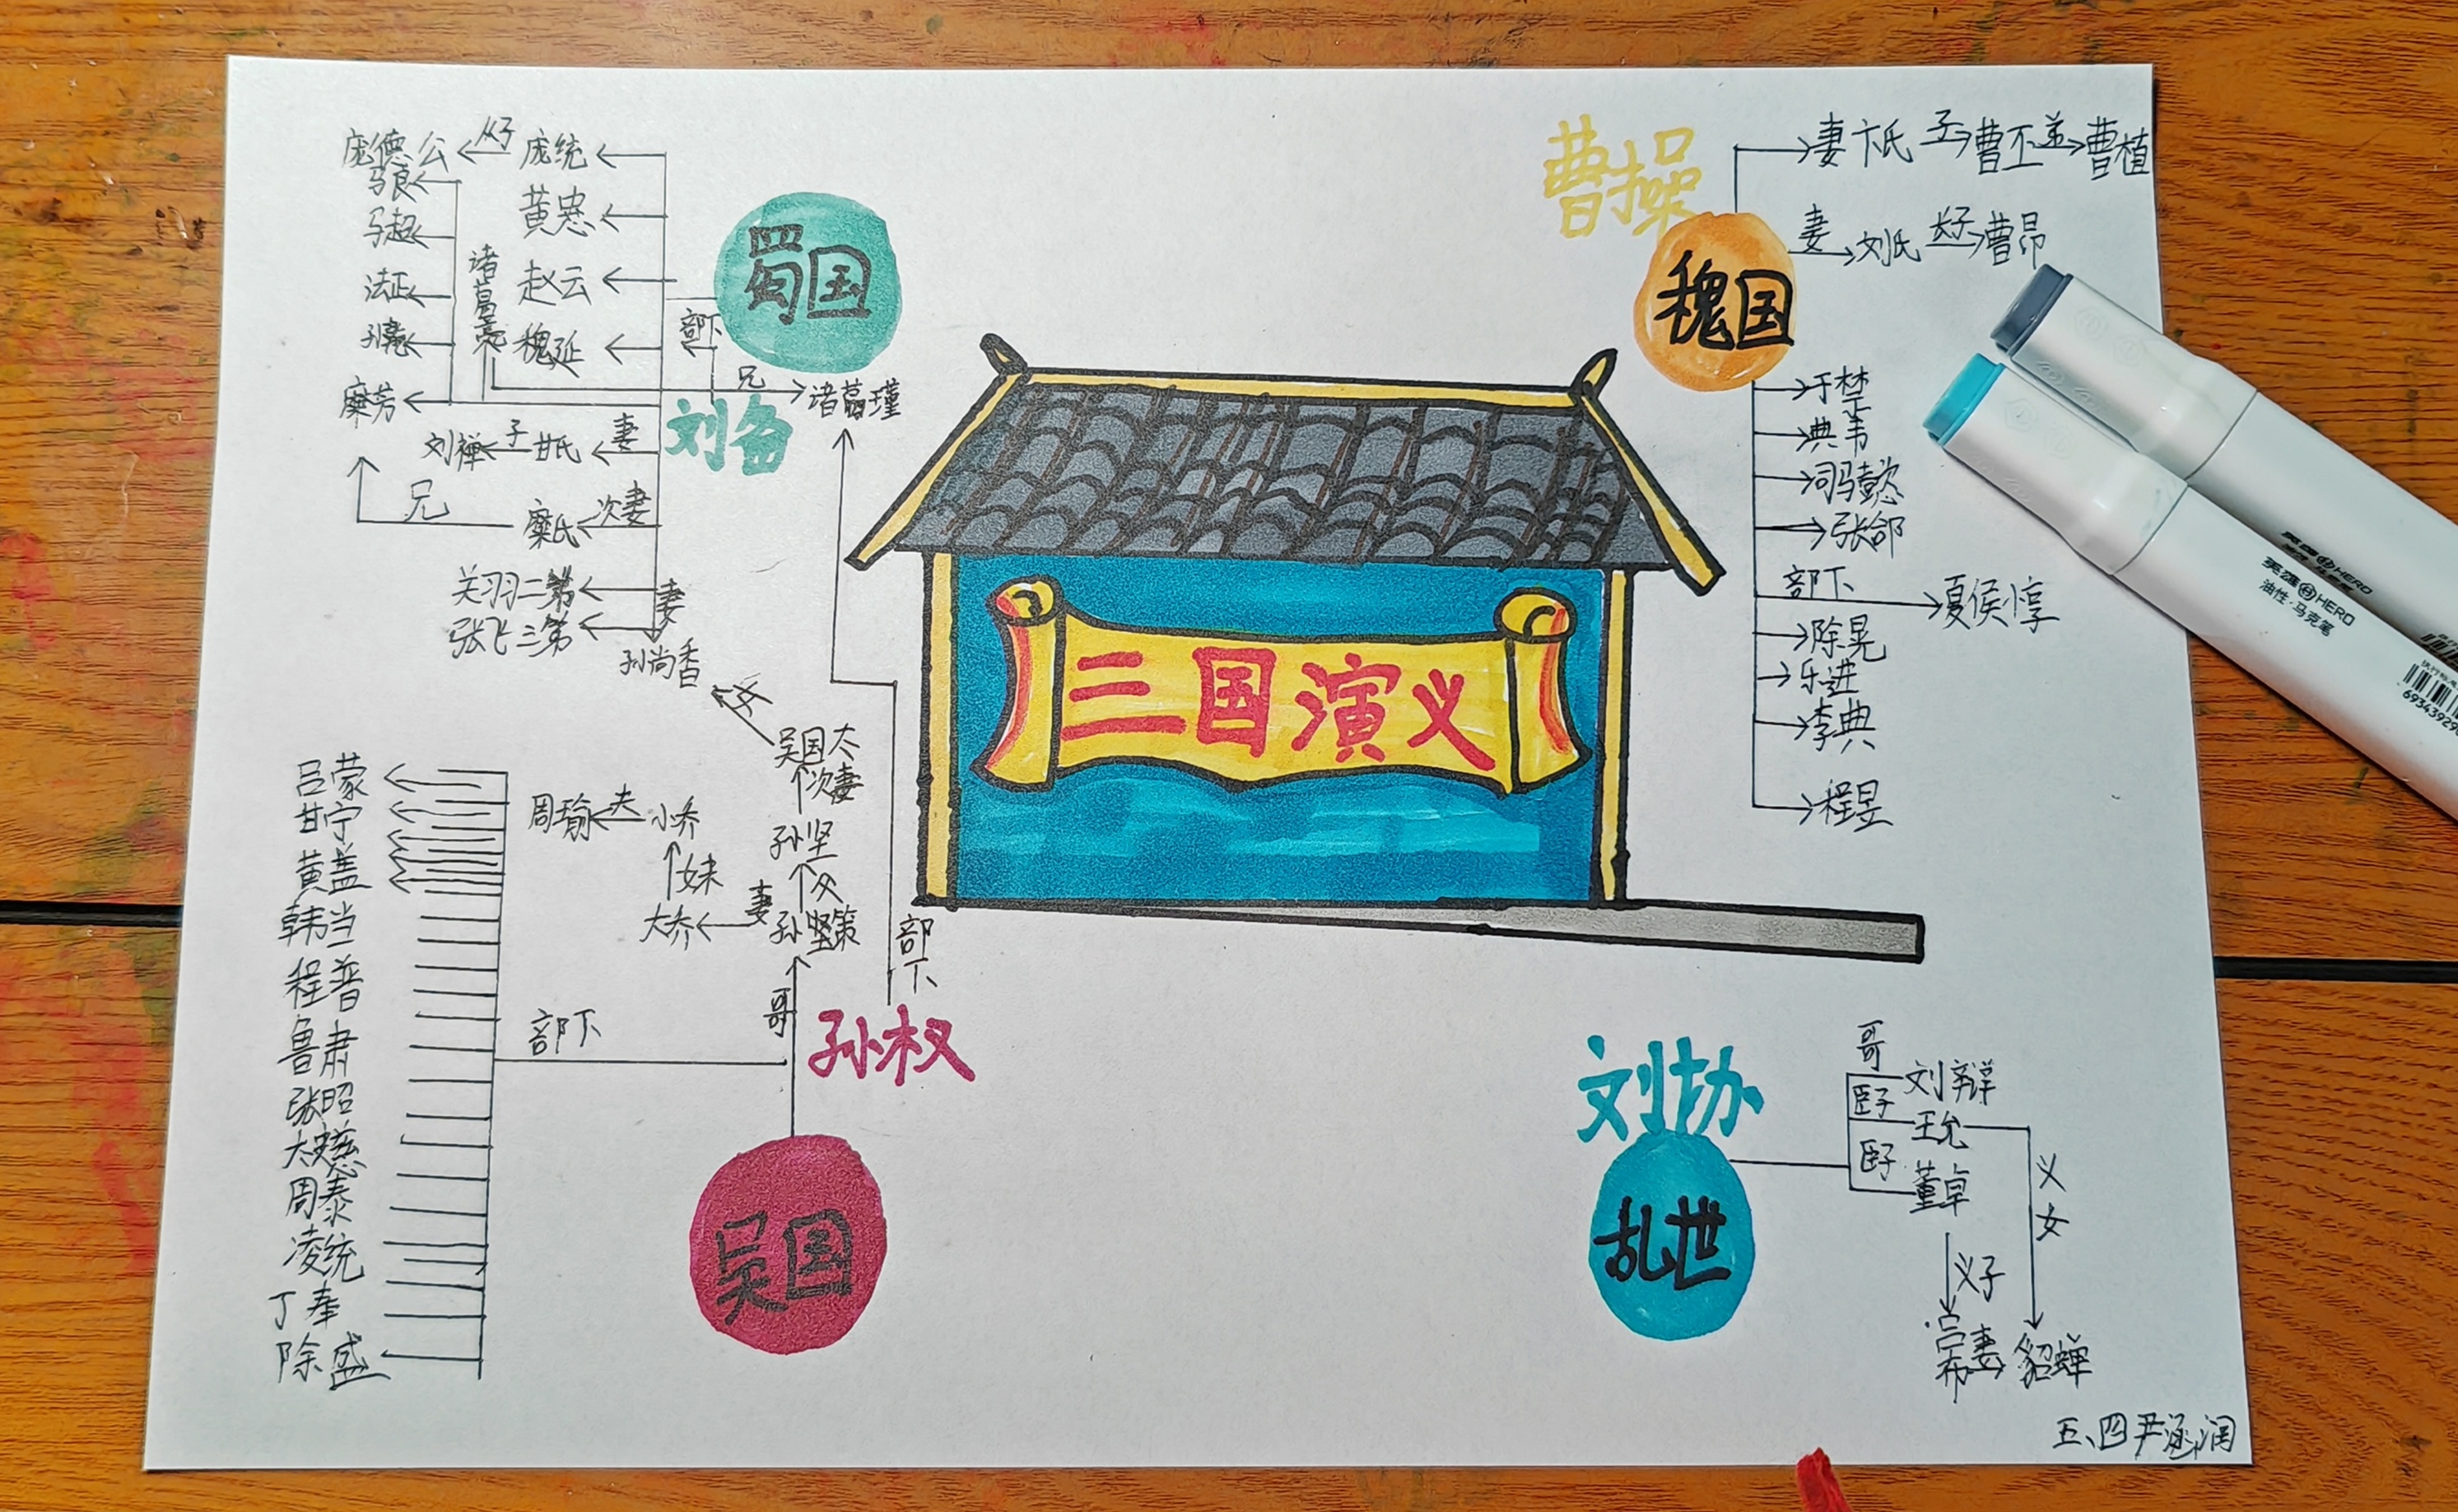 庞德公
从子
庞统
马良
黄忠
马超
诸葛亮
赵云
法正
魏延
孙乾
糜芳
蜀国
部下
兄
诸葛瑾
刘备
刘禅
子
甘氏
妻
兄
糜氏
次妻
关羽二弟
张飞三弟
妻
孙尚香
女
吴国太
次妻
孙坚
父
孙策
妻
大乔
妹
小乔
夫
周瑜
哥
孙权
部下
部下
吕蒙
甘宁
黄盖
韩当
程普
鲁肃
张昭
太史慈
周泰
凌统
丁奉
除盛
吴国
三国演义
曹操
魏国
妻
卞氏
子
曹丕
弟
曹植
妻
刘氏
长子
曹昂
于禁
典韦
司马懿
张郃
部下
夏侯惇
除晃
乐进
李典
程昱
刘协
乱世
哥
刘辩
臣子
王允
臣子
董卓
义女
义子
吕布
妻
貂蝉
五、四尹涵润
英雄 HERO
英雄 HERO
油性·马克笔